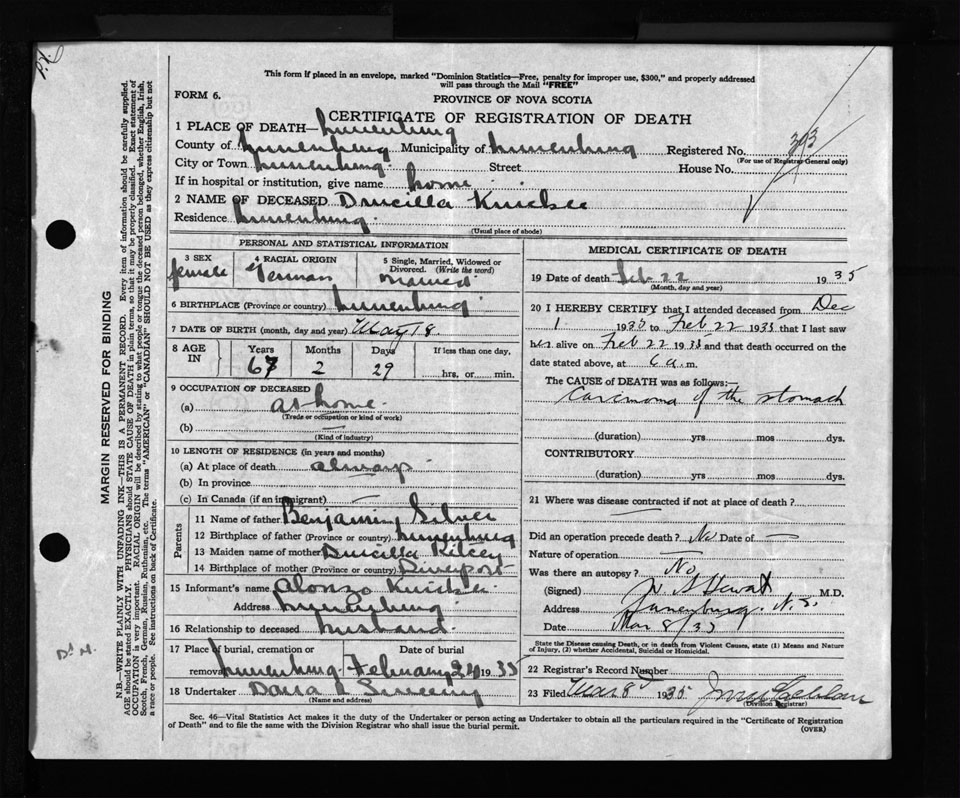 This form if placed in an envelope, marked "Dominion Statistics—Free, penalty for improper use, $300," and properly addressed
will pass through the Mail "FREE"
FORM 6.
PROVINCE OF NOVA SCOTIA
CERTIFICATE OF REGISTRATION OF DEATH
1 PLACE OF DEATH—Lunenburg
County of Lunenburg Municipality of Lunenburg Registered No. 393
(For use of Registrar General only)
City or Town Lunenburg Street House No.
If in hospital or institution, give name home
2 NAME OF DECEASED Drucilla
Residence Lunenburg
(Usual place of abode)
PERSONAL AND STATISTICAL INFORMATION
3 SEX
female
4 RACIAL ORIGIN
German
5 Single, Married, Widowed or
Divorced. (Write the word)
Married
6 BIRTHPLACE (Province or country) Lunenburg
7 DATE OF BIRTH (month, day and year) May 18
8 AGE
IN
Years Months Days If less than one day,
67 2 29 hrs. or min.
9 OCCUPATION OF DECEASED
(a) at home
(Trade or occupation or kind of work)
(b) —
(Kind of industry)
10 LENGTH OF RESIDENCE (in years and months)
(a) At place of death always
(b) In province
(c) In Canada (if an immigrant) —
Parents
11 Name of father Benjamin Silver
12 Birthplace of father (Province or country) Lunenburg
13 Maiden name of mother Drucilla
14 Birthplace of mother (Province or country)
15 Informant's name Alonzo
Address Lunenburg
16 Relationship to deceased husband
17 Place of burial, cremation or Date of burial
removal Lunenburg February 24 1935
18 Undertaker
(Name and address)
MEDICAL CERTIFICATE OF DEATH
19 Date of death Feb 22 1935
(Month, day and year)
20 I HEREBY CERTIFY that I attended deceased from Dec
1 1935 to Feb 22 1935 that I last saw
her alive on Feb 22 1935 and that death occurred on the
date stated above, at 6 a.m.
The CAUSE of DEATH was as follows:—
Carcinoma of the stomach
(duration) yrs mos dys.
CONTRIBUTORY
(duration) yrs mos dys.
21 Where was disease contracted if not at place of death?
Did an operation precede death? No Date of —
Nature of operation —
Was there an autopsy? No
(Signed) M.D.
Address Lunenburg. N.S.
Date Mar 8/35
State the Disease causing Death, or in death from Violent Causes, state (1) Means and Nature
of Injury, (2) whether Accidental, Suicidal or Homicidal.
22 Registrar's Record Number
23 Filed Mar 8 1935
(Division Registrar)
Sec. 46—Vital Statistics Act makes it the duty of the Undertaker or person acting as Undertaker to obtain all the particulars required in the "Certificate of Registration
of Death" and to file the same with the Division Registrar who shall issue the burial permit.
(OVER)
MARGIN RESERVED FOR BINDING
N.B.—WRITE PLAINLY WITH UNFADING INK—THIS IS A PERMANENT RECORD. Every item of information should be carefully supplied.
AGE should be stated EXACTLY. PHYSICIANS should STATE CAUSE OF DEATH in plain terms, so that it may be properly classified. Exact statement of
OCCUPATION is very important. RACIAL ORIGIN will be described by stating to what people or tongue the deceased person belonged, whether English, Irish,
Scotch, French, German, Russian, Ruthenian, etc. The terms "AMERICAN" or "CANADIAN" SHOULD NOT BE USED as they express citizenship but not
a race or people. See instructions on back of Certificate.